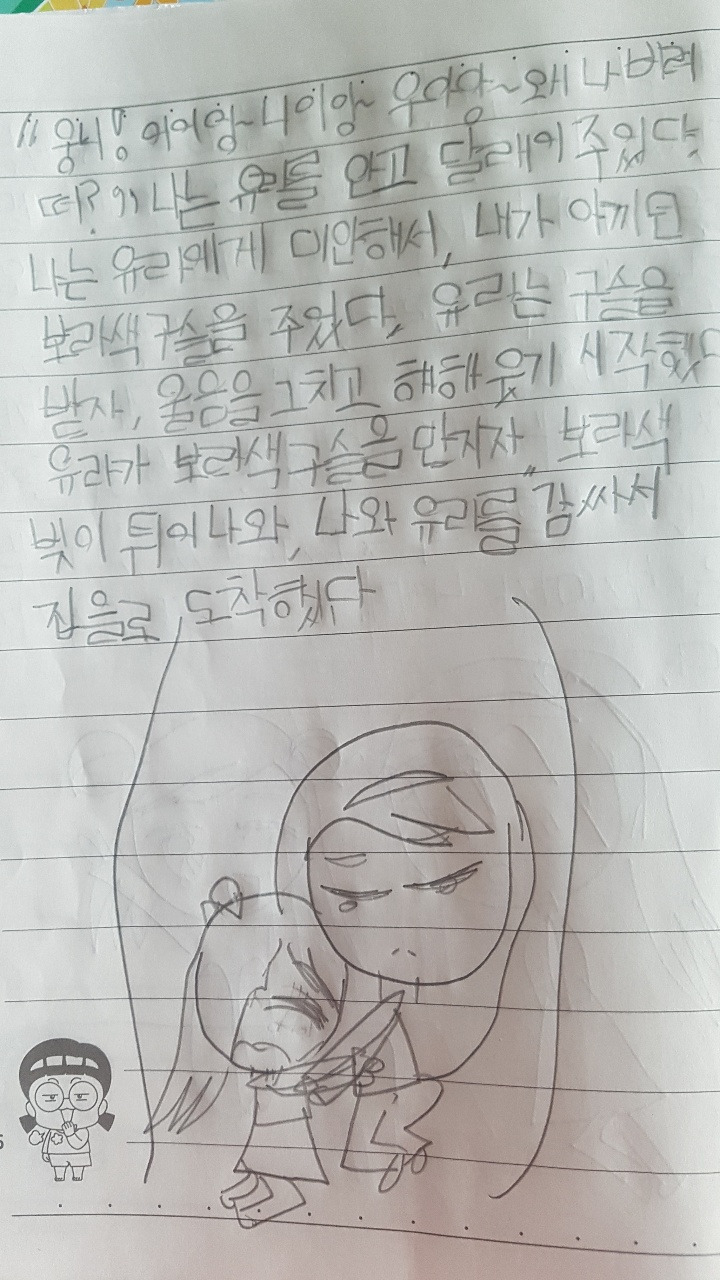 "웅니잉 어어앙~니이앙~ 우아앙~왜 나 버려
떠?" 나는 유리를 안고 달래어 주었다.
나는 유리에게 미안해서, 내가 아끼던
보라색구슬을 주었다, 유리는 구슬을
받자, 울음을 그치고 해해 웃기 시작했다
유리가 보라색구슬을 만지자, 보라색
빛이 튀어나와, 나와 유리를 감싸서
집을로 도착했다